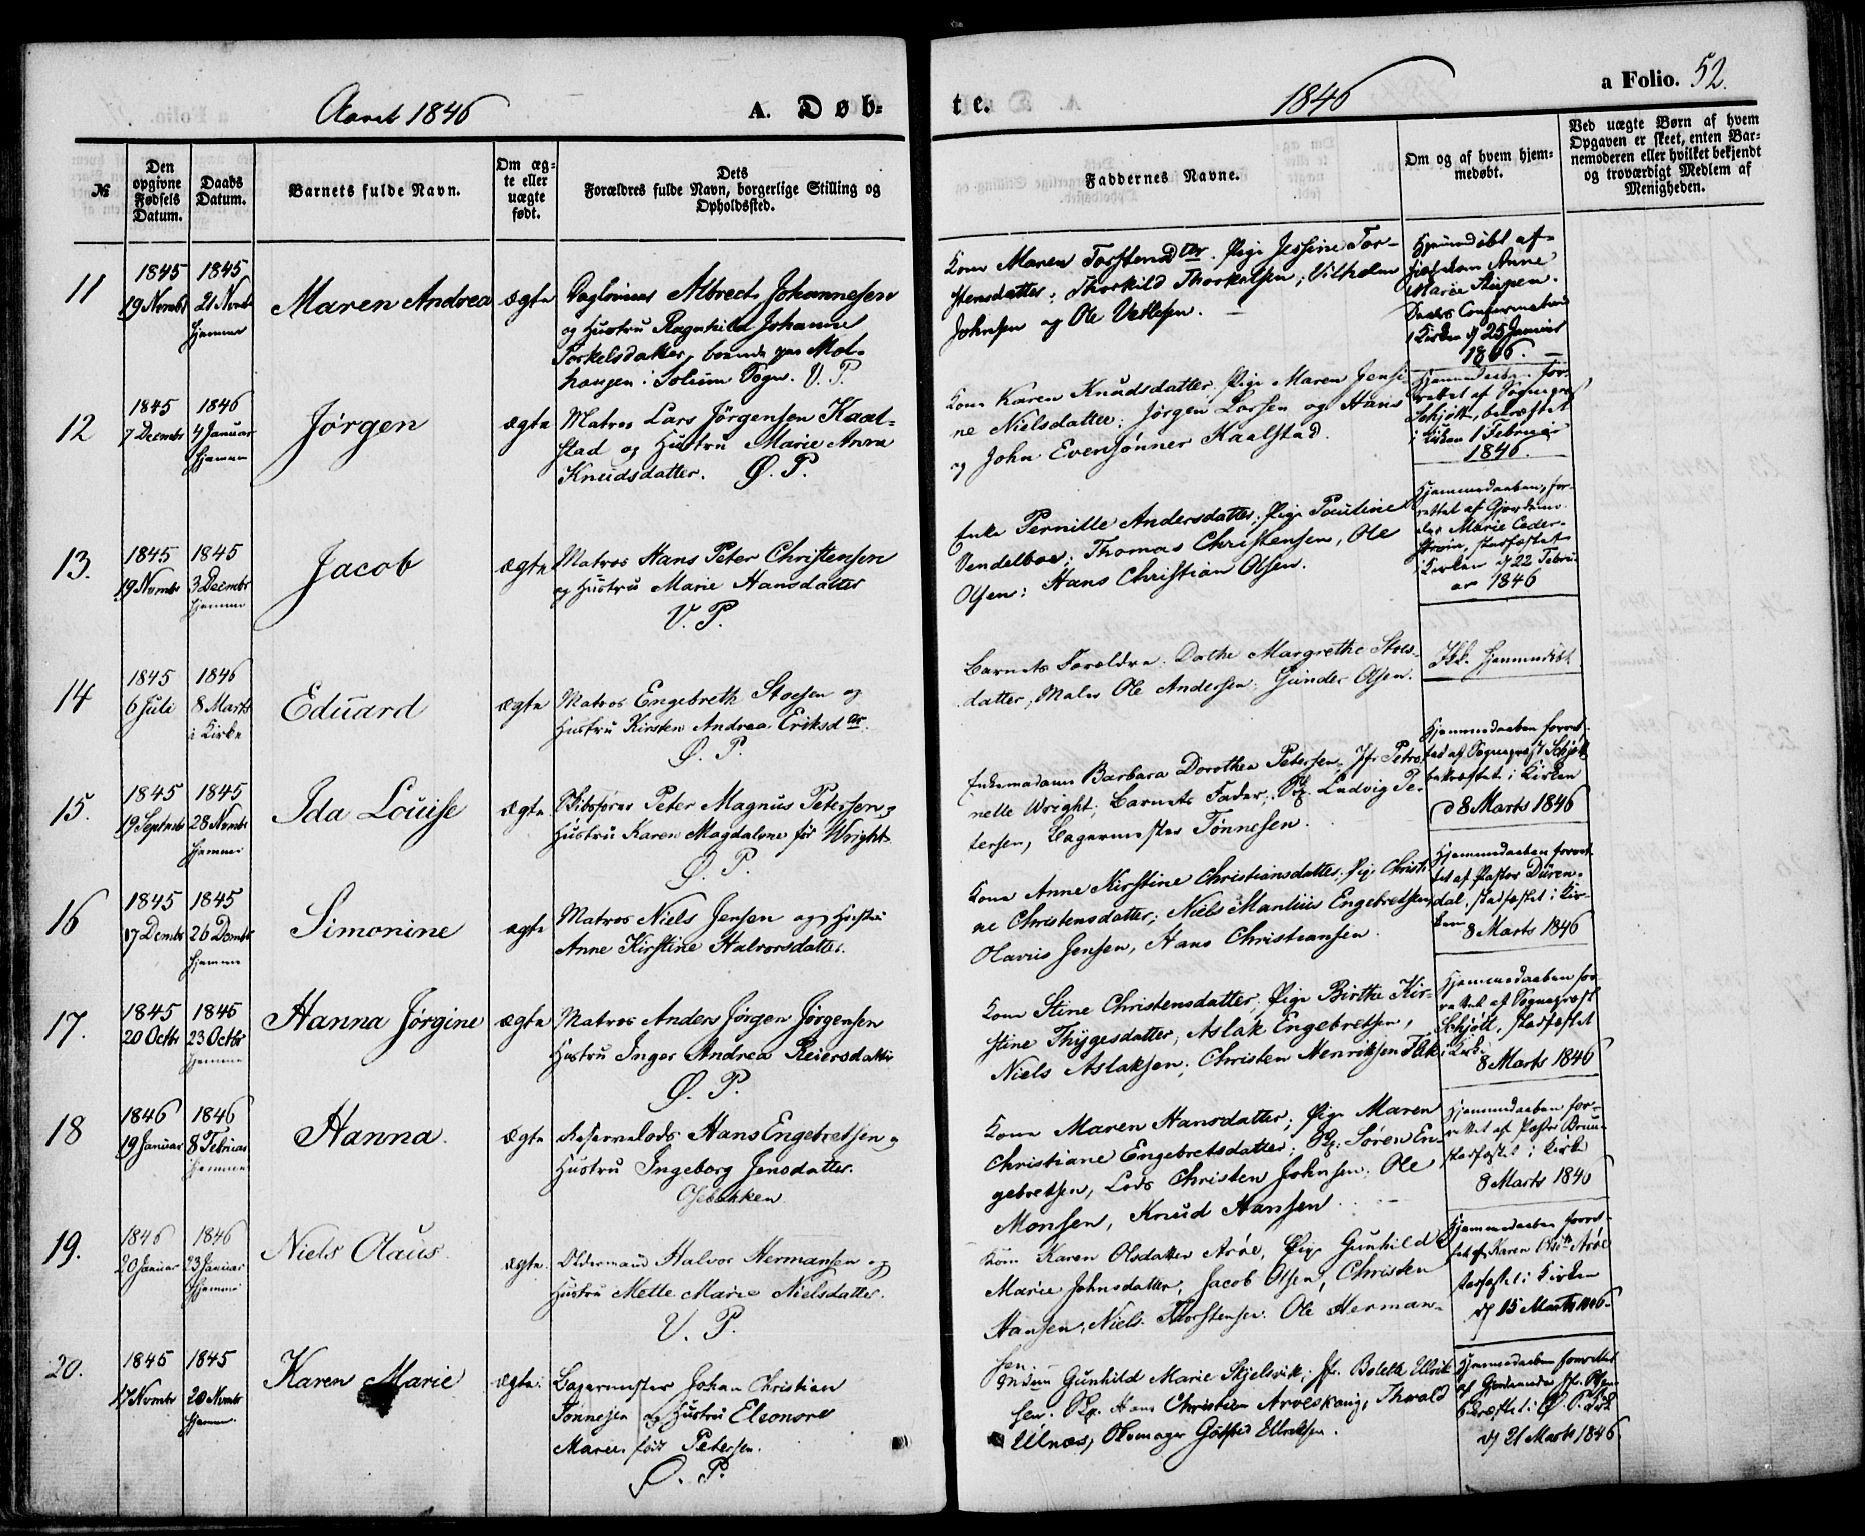 Aaret 1846
A. Døb-
te.
1846
a Folio. 52.
№
Den opgivne Fødsels Datum.
Daabs Datum.
Barnets fulde Navn.
Om ægte eller uægte født.
Dets Forældres fulde Navn, borgerlige Stilling og Opholdssted.
Faddernes Navne.
Om og af hvem hjemmedøbt.
Ved uægte Børn af hvem Opgaven er skeet, enten Barnemoderen eller hvilket bekjendt og troværdigt Medlem af Menigheden.
11
1845
19 Novmbr
1845
21 Novbr
hjemme
Maren Andrea
ægte
Daglönner Albrect Johannesen
og Hustru Ragnhild Johanne
Torkelsdatter, boende paa Mol-
haugen i Solum Sogn. V. P.
Kone Maren Torstensdtr. Pige Jessine Tor-
stensdatter; Thorkild Thorkelsen; Vilhelm
Johnsen og Ole Vetlesen.
Hjemmedöbt af
Anne
Marie
Daabs Confirmation
i Kirken d 25 Januar
1846.
12
1845
7 Decmbr
1846
4 Januar
hjemme
Jørgen
ægte
Matros Lars Jörgensen Kaal-
stad og Hustru Marie Anna
Knudsdatter. Ø. P.
Kone Karen Knudsdatter, Pige Maren Jensi-
ne Nielsdatter; Jörgen Larsen og Hans
og John Evensönner Kaalstad.
Hjemmedaaben for-
rettet af Sognepræst
Schjött, bekræftet
i Kirken 1 Februar
1846.
13.
1845
19 Novmbr
1845
3 Decmbr
hjemme
Jacob
ægte
Matros Hans Peter Christensen
og Hustru Marie Hansdatter
V. P.
Enke Pernille Andersdatter; Pige Pauline
Vendelboe; Thomas Christensen, Ole
Olsen; Hans Christian Olsen.
Hjemmedaaben, for-
rettet af Gjordemo-
der Marie Ceder-
ström, stadfæstet
i Kirken d 22 Febru
ar 1846
14
1845
6 Juli
1846
8 Marts
i Kirke
Eduard
ægte
Matros Engebreth Stoesen og
Hustru Kirsten Andrea Eriksdtr.
Ø. P.
Barnets Forældre; Dothe Margrethe Stoes-
datter, Maler Ole Andersen; Gunder Olsen.
Ikke hjemmedöbt
15.
1845
19 Septmbr
1845
28 Novmbr
hjemme
Ida Louise
ægte
Skibsförer Peter Magnus Petersen og
Hustru Karen Magdalene för Wright.
Ø. P.
Enkemadame Barbara Dorothea Petersen, Jfr Petro-
nelle Wright; Barnets Fader; Ludvig Pe-
tersen, Lagermester Tønnesen.
Hjemmedaaben forret-
tet af Sognepræst Schjött
bekræftet i Kirken
d 8 Marts 1846
16
1845
17 Decmbr
1845
26 Decmbr
hjemme
Simonine
ægte
Matros Niels Jensen og Hustru
Anne Kirstine Halvorsdatter.
Kone Anne Kirstine Christiansdatter; Pige Christi-
ne Christensdatter; Niels Mantius Engebretsen,
Olavus Jensen, Hans Christiansen.
Hjemmedaaben forret-
tet af Pastor Düren-
dal, stadfæstet i Kir-
ken 8 Marts 1846
17.
1845
20 Octbr
1845
23 Octbr
hjemme
Hanna Jørgine
ægte
Matros Anders Jörgen Jörgensen
Hustru Inger Andrea Reiersdatter
Ø. P.
Kone Stine Christensdatter; Pige Birthe Kir-
stine Thygesdatter, Aslak Engebretsen,
Niels Aslaksen; Christen Henriksen
Hjemmedaaben for-
rettet af Sognepræst
Schjött, stadfæstet
i Kirke
8 Marts 1846
18
1846
19 Januar
1846
8 Februar
hjemme
Hanna.
ægte
Reservelods Hans Engebretsen og
Hustru Ingeborg Jensdatter.
Osebakken
Kone Maren Hansdatter; Pige Maren
Christiane Engebretsdatter; Sören En-
gebretsen, Lods Christen Johnsen; Ole
Monsen, Knud Hansen.
Hjemmedaaben for-
rettet af Pastor Bruun
stadfæstet i Kirke
8 Marts 1846
19.
1846
20 Januar
1846
23 Januar
hjemme
Niels Olaus
ægte.
Oldermand Halvor Hermansen og
Hustru Mette Marie Nielsdatter.
V. P.
Kone Karen Olsdatter Aröe, Pige Gunhild
Marie Johnsdatter, Jacob Olsen, Christen
Hansen, Niels Thorstensen. Ole Herman-
sen
Hjemmedaaben forret-
tet af Karen Olsdtr Aröe
stadfæstet i Kirken
d 15 Marts 1846
20.
1845
17 Novmbr
1845
20 Novmbr
hjemme
Karen Marie
ægte.
Lagermester Johan Christian
Tønnesen og Hustru Eleonore
Marie född Petersen.
Ø. P.
Madam Gunhild Marie Skjelsvik; Jfr. Bolette Ellrik-
sen. Hans Christian Aroeskaug, Thorvald
Ulnæs, Gotfred Ellriksen.
Hjemmedaaben forrettet
af
bekræftet i Ø. P. Kirk
d 21 Marts 1846